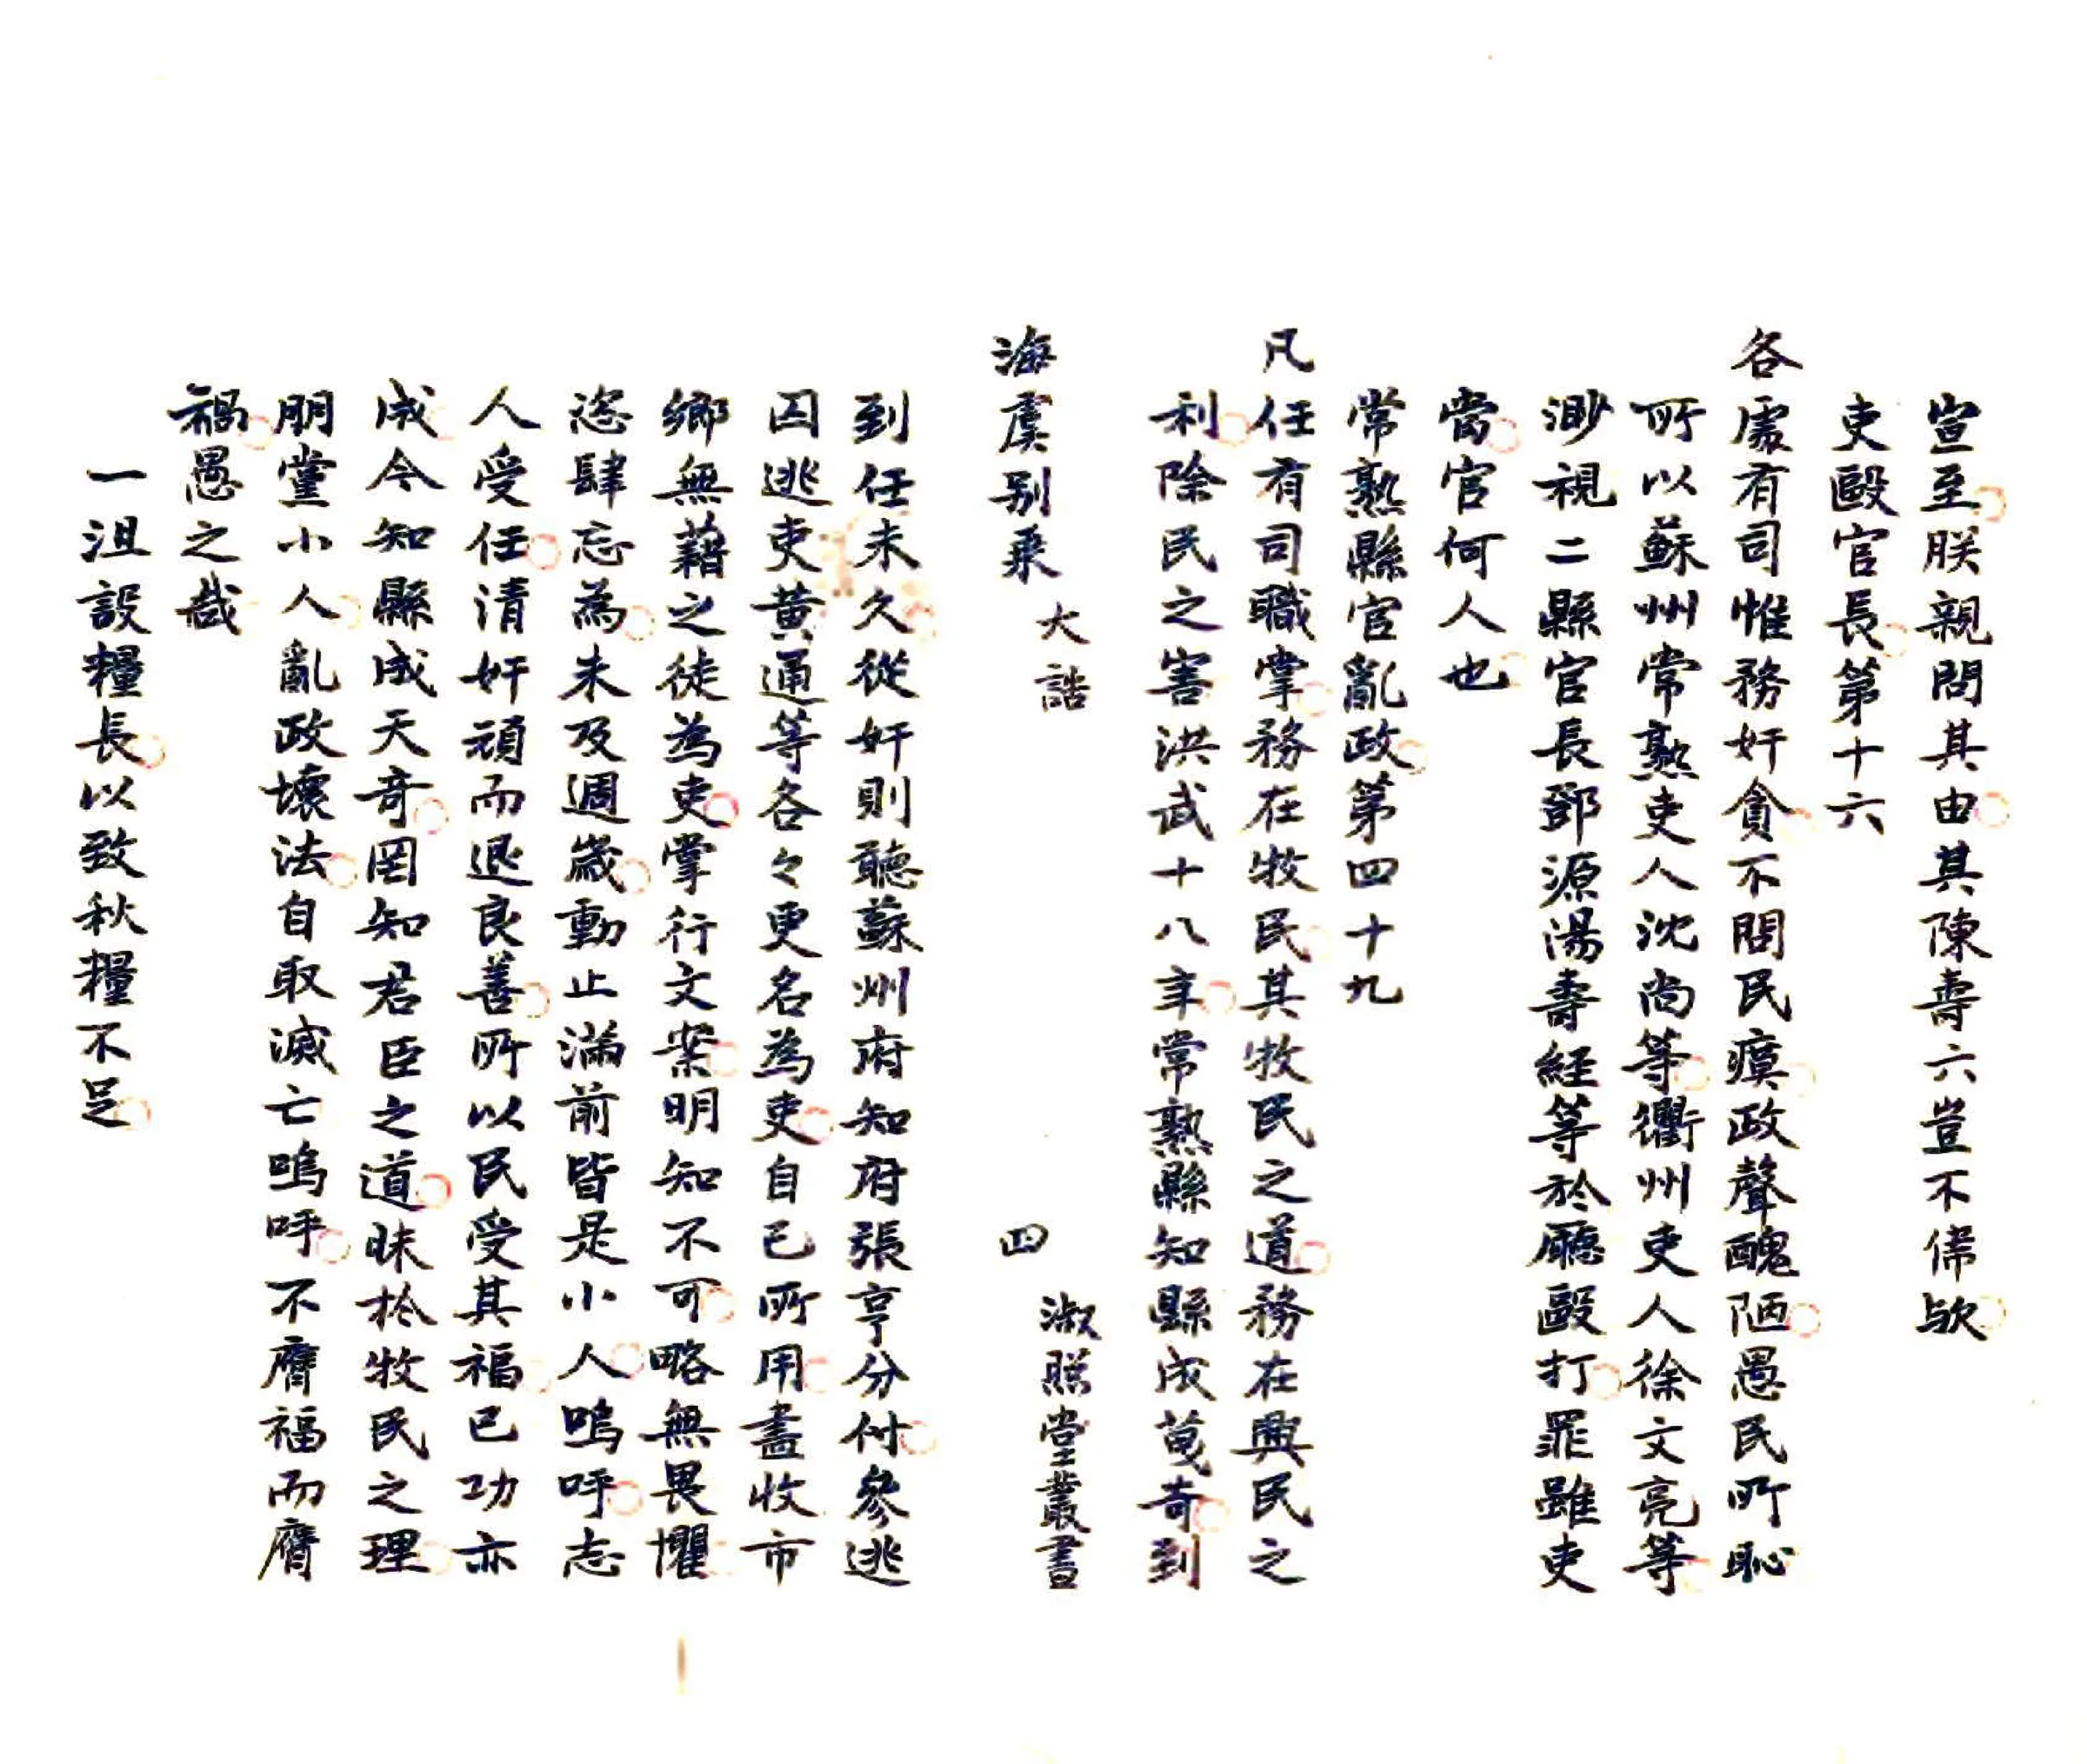 宣至朕親問其由其陳壽六豈不偉歟
吏毆官長第十六
各處有司惟務奸貪不問民瘼政聲醜陋愚民所恥
所以蘇州常熟吏人沈尚等衢州吏人徐文亮等
渺視二縣官長鄧源湯壽経等於廳毆打罪雖吏
當官何人也
常熟縣官亂政第四十九
凡任有司職掌務在牧民其牧民之道務在興民之
利除民之害洪武十八年常熟縣知縣成茣奇到
海虞别乘 大誥 四 淑照堂叢書
到任未久從奸則聽蘇州府知府張亨分付參逃
囚逃吏黄通等各々更名為吏自已所用盡收市
鄉無藉之徒為吏掌行文案明知不可略無畏懼
恣肆忘為未及週歲動止滿前皆是小人嗚呼志
人受任清奸頑而退良善所以民受其福已功亦
成今知縣成天奇罔知君臣之道昧於牧民之理
朋黨小人亂政壞法自取滅亡嗚呼不膺福而膺
禍愚之哉
一沮設糧長以致秋糧不足